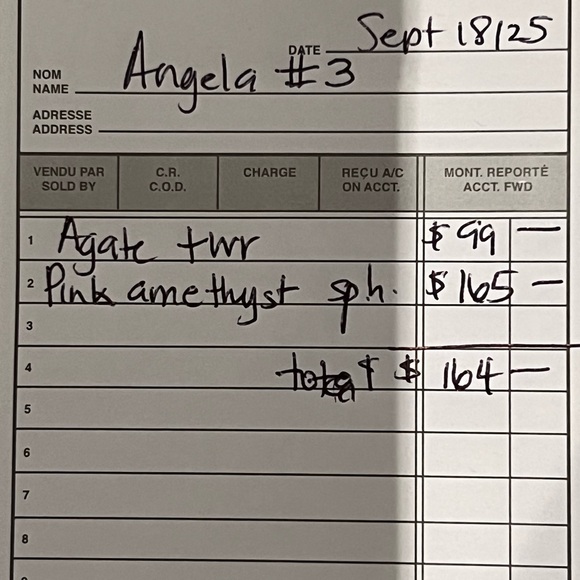 DATE Sept 18/25
NOM
NAME Angela #3
ADRESSE
ADDRESS
VENDU PAR SOLD BY C.R. C.O.D. CHARGE REÇU A/C ON ACCT. MONT. REPORTÉ ACCT. FWD
1 Agate twr $99 —
2 Pink amethyst sph. $165 —
3
4 total $ 164 —
5
6
7
8